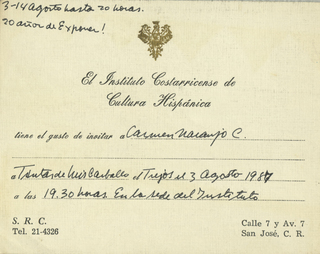 3-14 Agosto hasta 20 horas.
20 años de Exponer!
El Instituto Costarricense de
Cultura Hispánica
tiene el gusto de invitar a Carmen Naranjo C.
a Tintas de Luis Carballo el Trejos el 3 Agosto 1987
a las 19.30 horas En la sede del Instituto
S. R. C.
Tel. 21-4326
Calle 7 y Av. 7
San José, C. R.